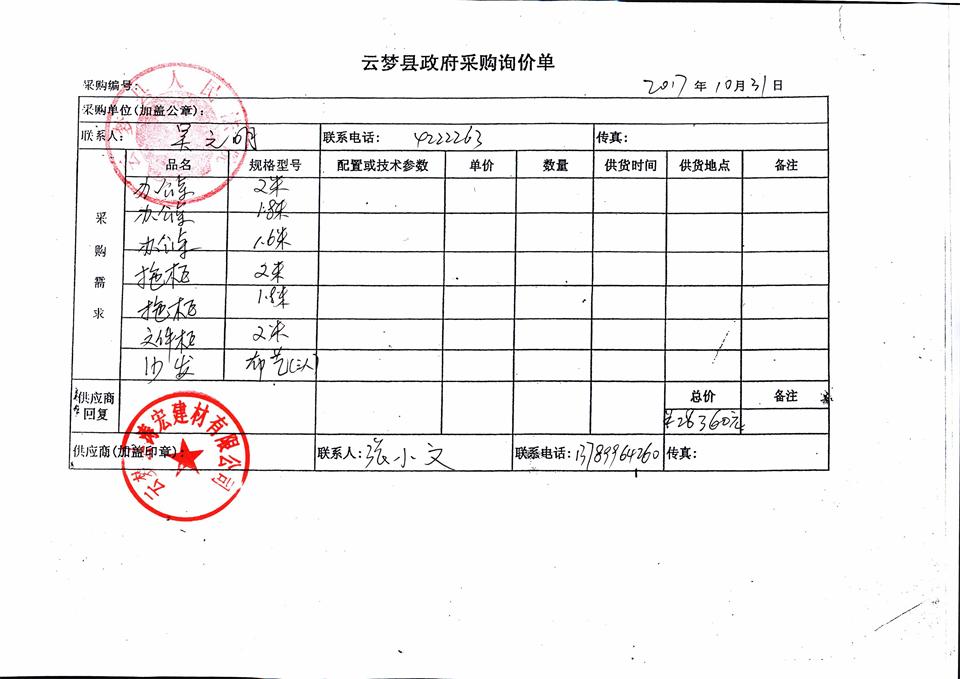 云梦县政府采购询价单
采购编号: 2017 年 10 月 31 日
采购单位(加盖公章):
联系人: 吴元明 联系电话: 4222263 传真:
采购需求 品名 规格型号 配置或技术参数 单价 数量 供货时间 供货地点 备注
办公桌 2米
办公桌 1.8米
办公桌 1.6米
拖柜 2米
拖柜 1.8米
文件柜 2米
沙发 布艺(三人)
供应商回复 总价 备注
¥28360元
供应商(加盖印章): 联系人: 张小文 联系电话: 13789964260 传真:
人民
宏建材有限公司